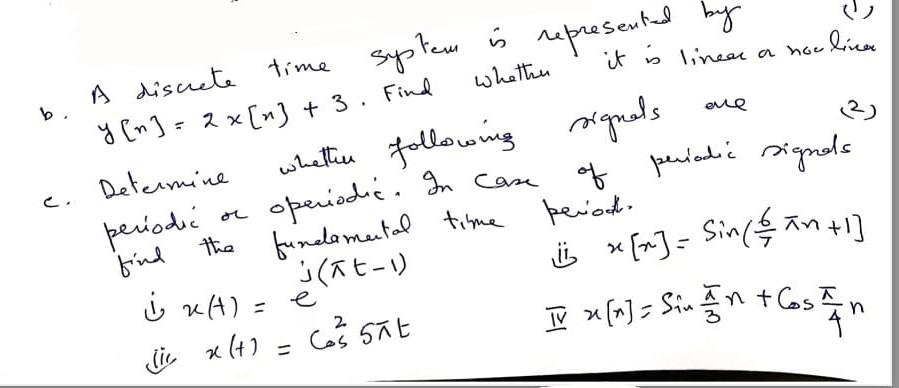 (1)
b. A discrete time system is represented by
y[n] = 2x[n] + 3. Find whether it is linear or non linear
(2)
c. Determine whether following signals are
periodic or aperiodic. In case of periodic signals
find the fundamental time period.
i) x(t) = e^j(πt-1)
ii) x[n] = Sin(6/7 πn +1]
iii) x(t) = Cos² 5πt
IV x[n] = Sin π/3 n + Cos π/4 n